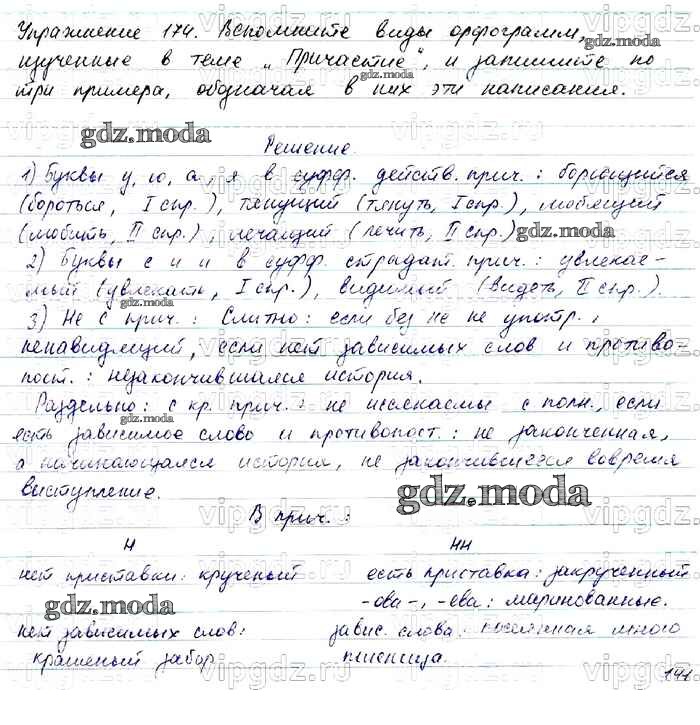 Упражнение 174. Вспомните виды орфограмм,
изученные в теме „Причастие“, и запишите по
три примера, обозначая в них эти написания.
Решение.
1) Буквы у, ю, а, я в суфф. действ. прич.: борющийся
(бороться, I спр.), тянущий (тянуть, I спр.), любящий
(любить, II спр.) лечащий (лечить, II спр.)
2) Буквы е и и в суфф. страдат. прич.: увлекае-
мый (увлекать, I спр.), видимый (видеть, II спр.)
3) Не с прич.: Слитно: если без не не употр.,
ненавидящий, если нет зависимых слов и противо-
пост.: незакончившаяся история.
Раздельно: с кр. прич.: не иссякаемы с полн., если
есть зависимое слово и противопост.: не законченная,
а начинающаяся история, не закончившееся вовремя
выступление.
В прич.:
Н НН
нет приставки: кручёный есть приставка: закрученный
-ова-, -ева: маринованные.
нет зависимых слов: завис. слова: посеянная много
крашеный забор пшеница.
141
gdz.moda
gdz.moda
gdz.moda
gdz.moda
gdz.moda
gdz.moda
gdz.moda
gdz.moda
gdz.moda
gdz.moda
vipgdz.com